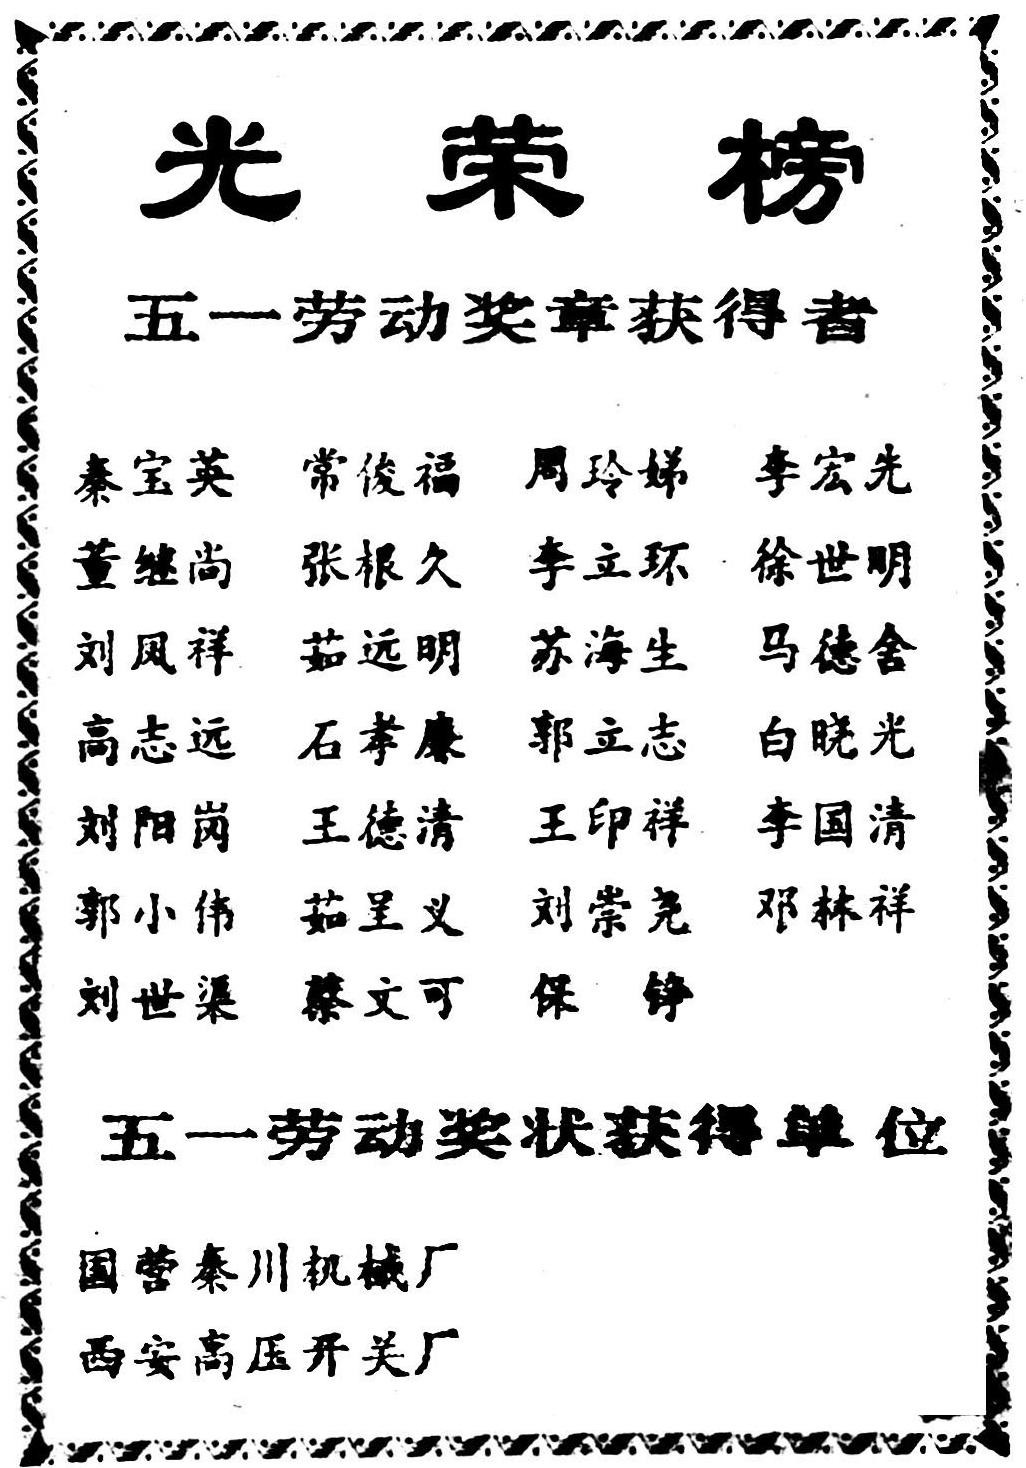 光荣榜
五一劳动奖章获得者
秦宝英 常俊福 周玲娣 李宏先
董继尚 张根久 李立环 徐世明
刘凤祥 茹远明 苏海生 马德舍
高志远 石孝廉 郭立志 白晓光
刘阳岗 王德清 王印祥 李国清
郭小伟 茹呈义 刘崇尧 邓林祥
刘世渠 蔡文可 保 铮
五一劳动奖状获得单位
国营秦川机械厂
西安高压开关厂